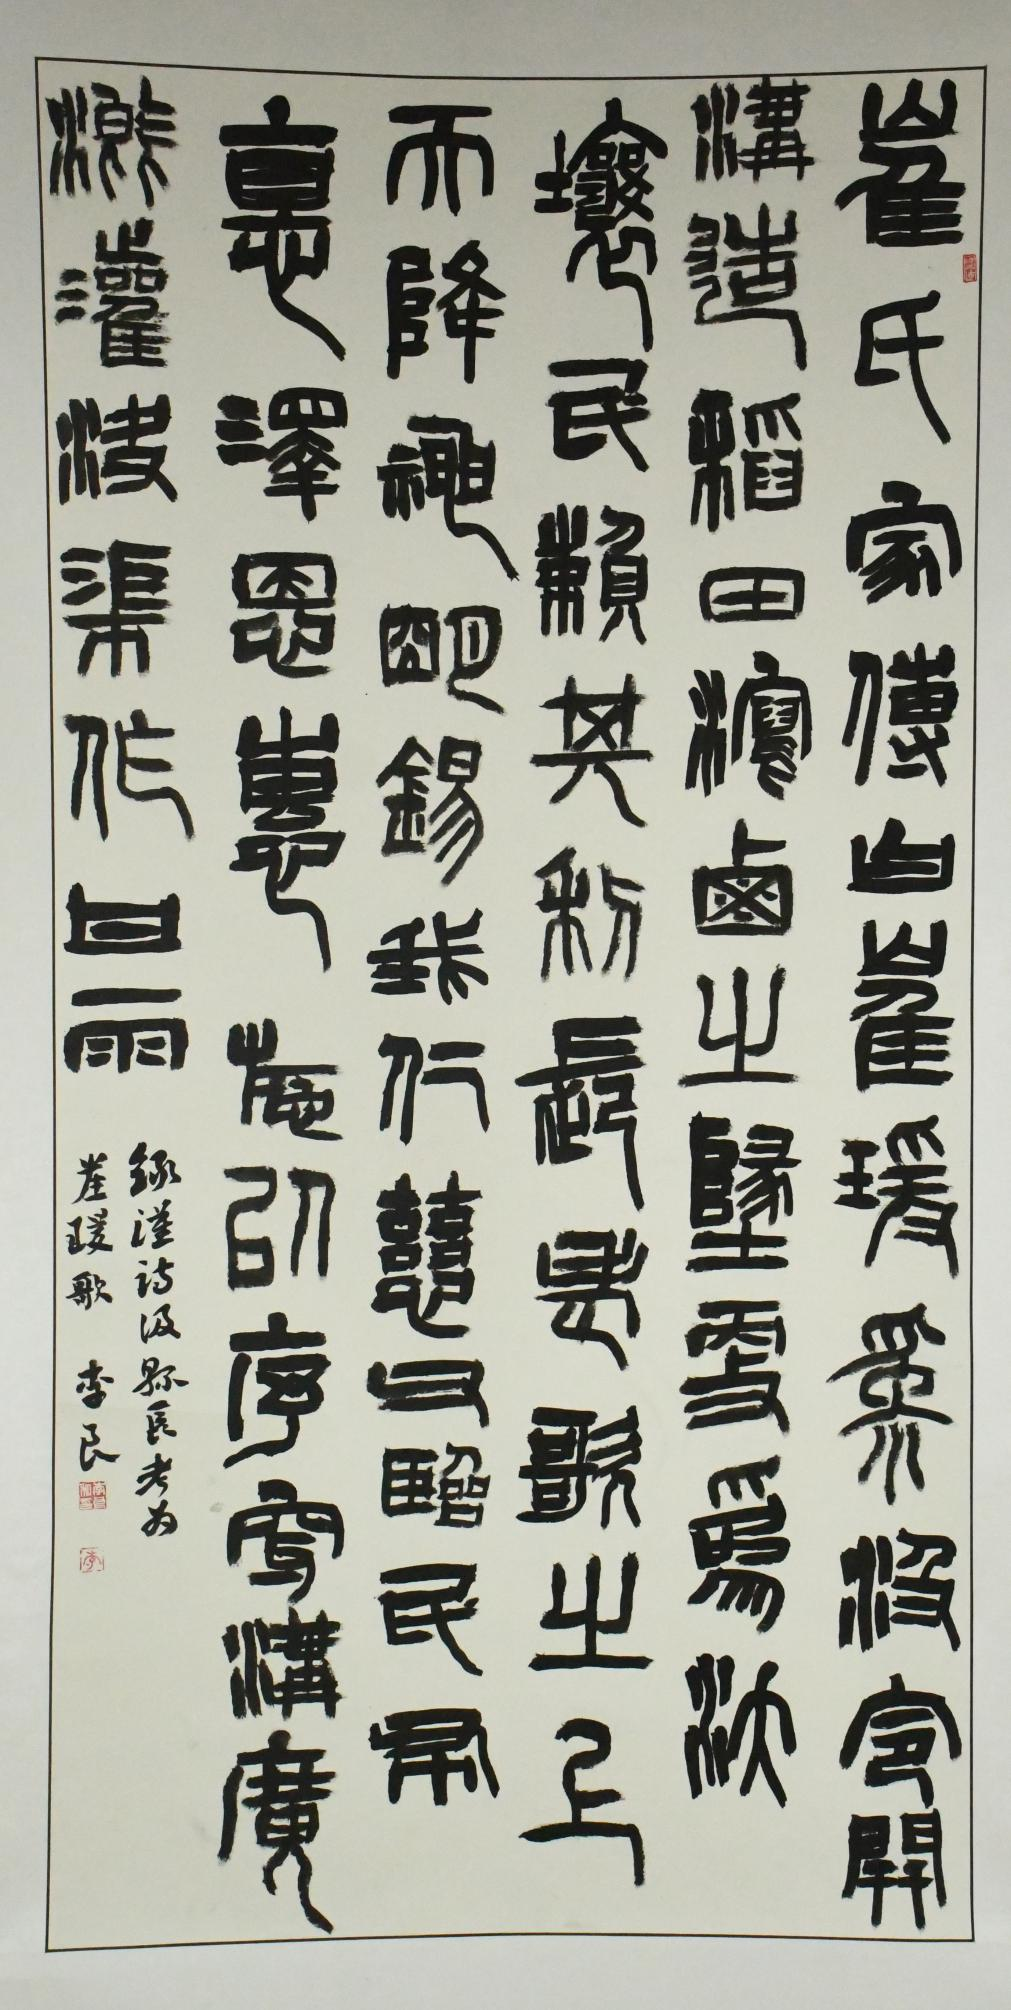 崔氏家傳曰崔瑗為汲令開
溝造稻田瀉鹵之墬更為沃
壤民賴其利長老歌之上
天降神明錫我仁慈父臨民布
悳澤恩惠施以序穿溝廣
溉灌決渠作甘雨
錄漢詩汲縣長老为
崔瑗歌 李良